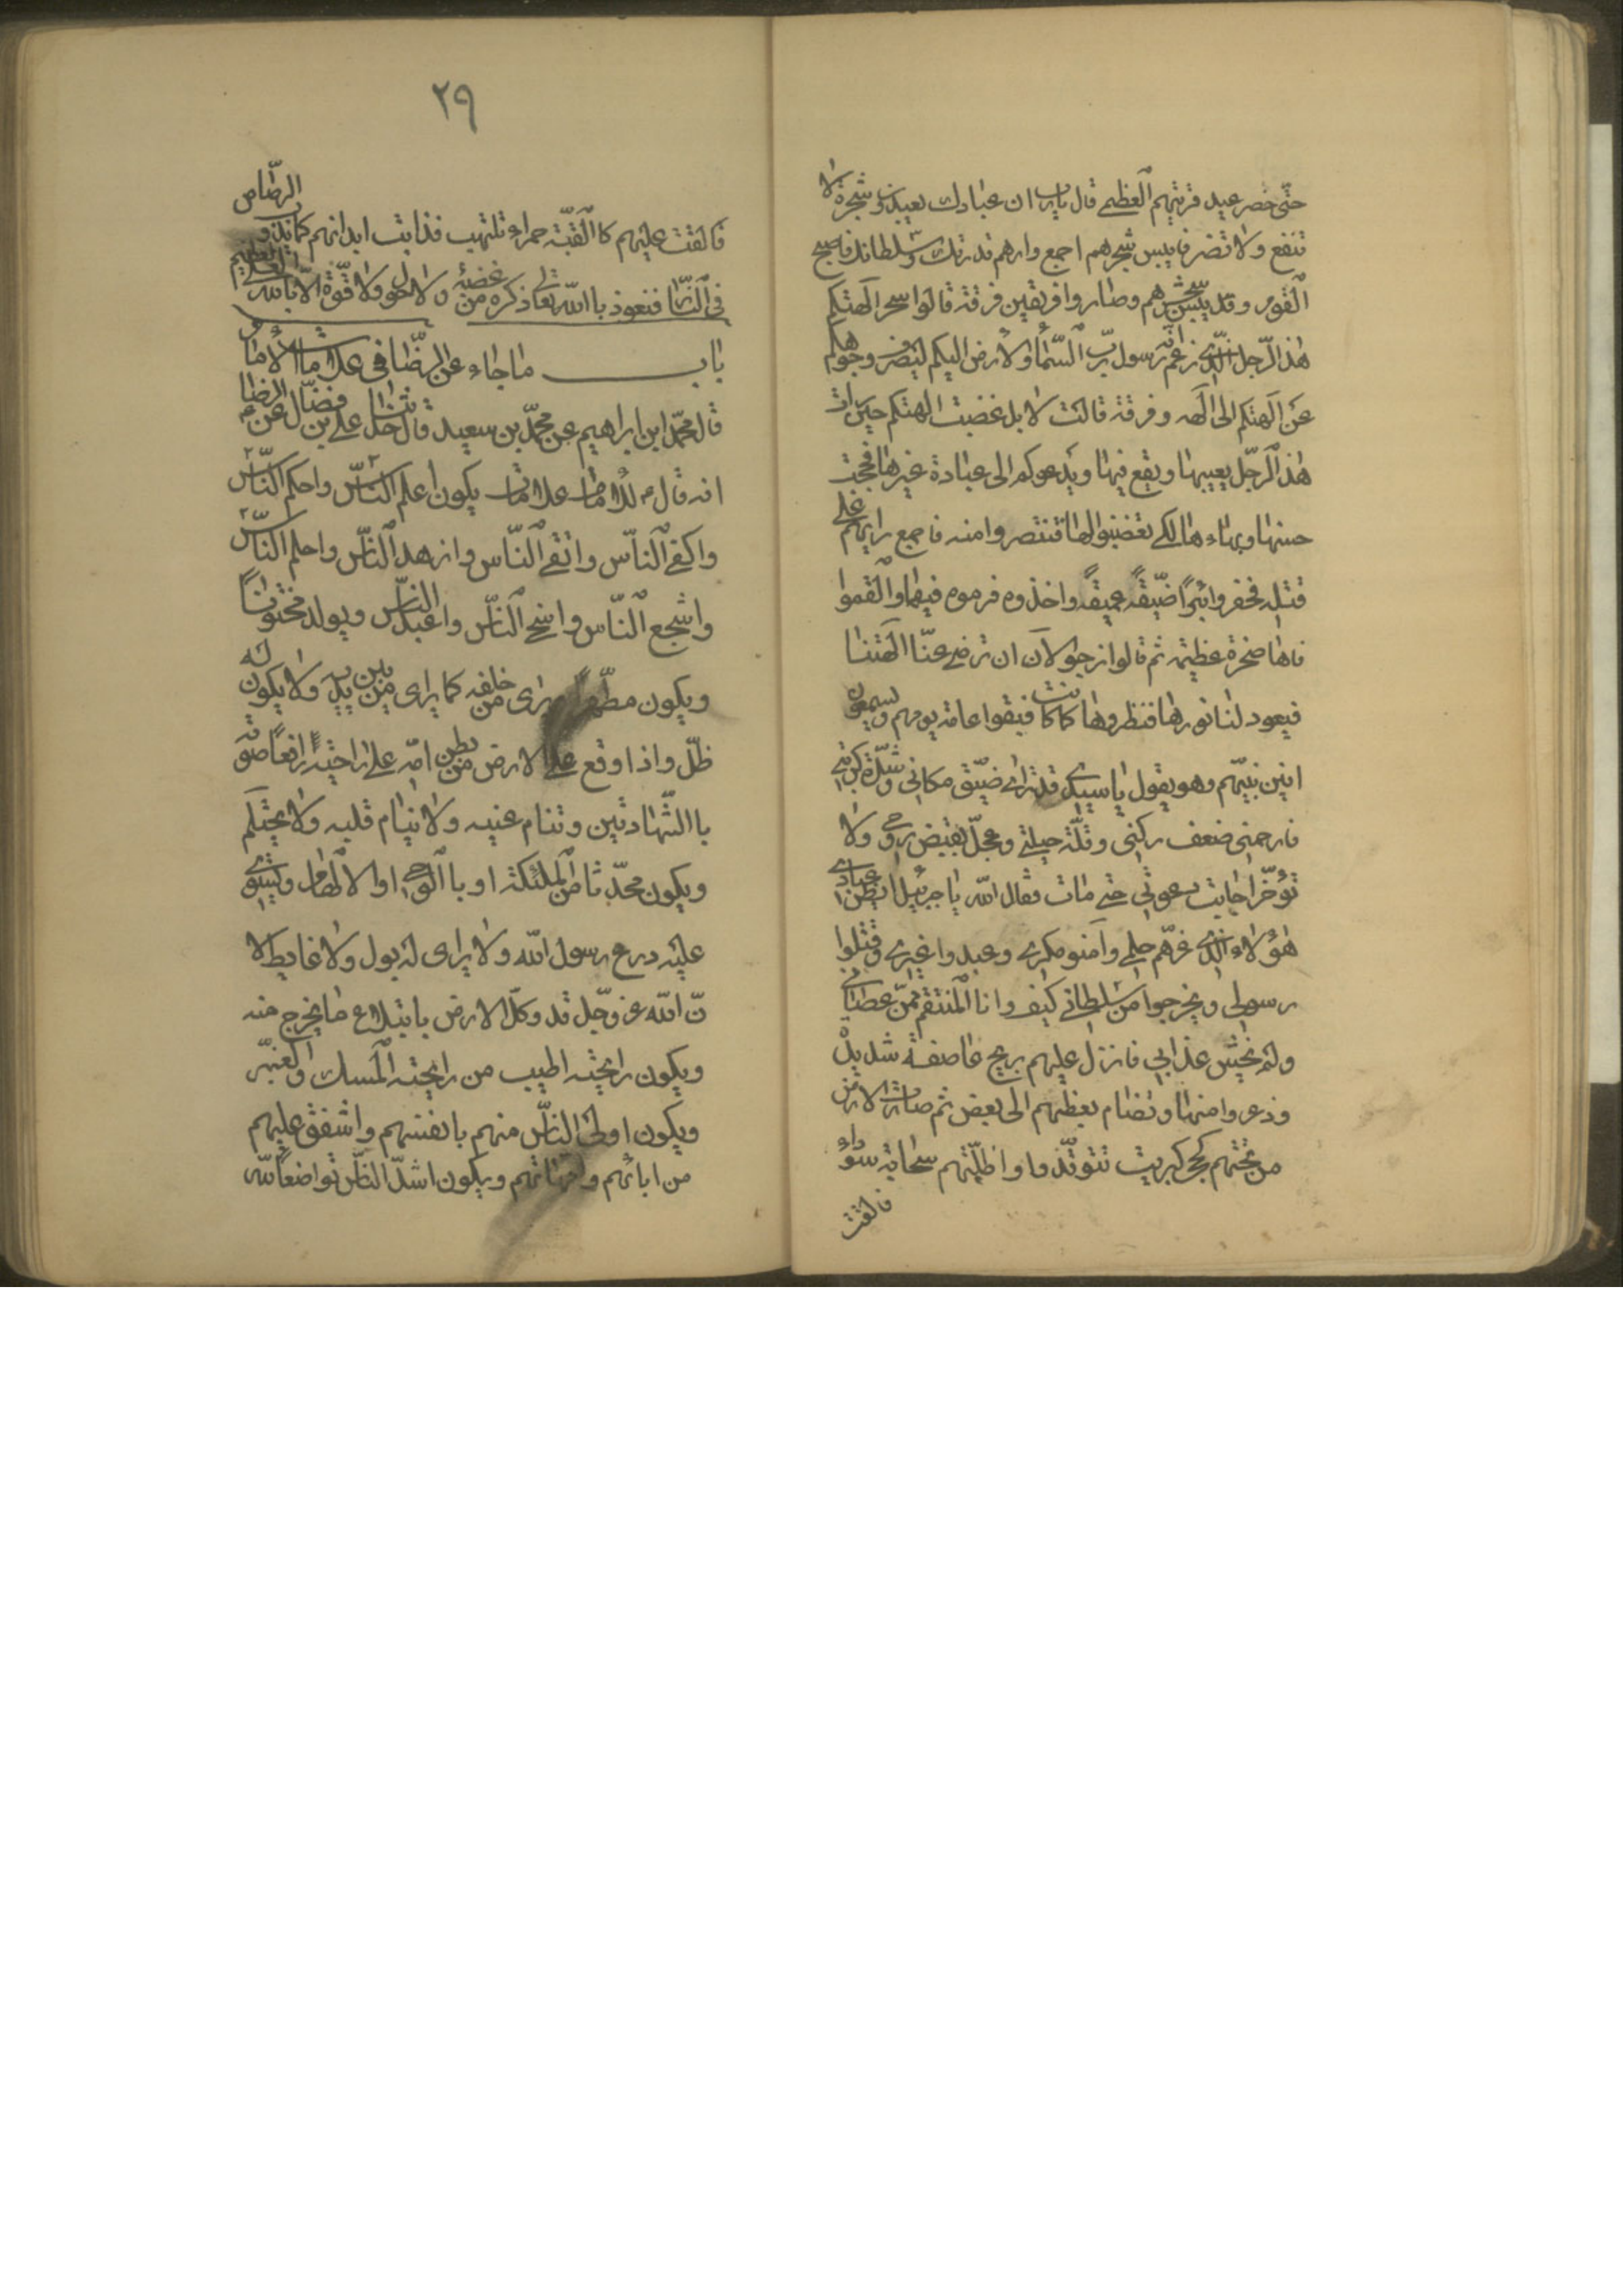 حتّى حضر عيد قريتهم العظمى قال يا رب ان عبادك يعبدون شجرة لا
تنفع ولا تضر فايبس شجرهم اجمع وارهم قدرتك وسلطانك فاصبح
القوم وقد يبس شجرهم وصاروا فريقين فرقة قالوا سحر الهتكم
هذا الرّجل الّذي زعم انّه رسول ربّ السّماء والارض اليكم ليصرف وجوهكم
عن الهتكم الى الهه وفرقة قالت لا بل غضبت الهتكم حين
هذا الرّجل يعيبها ويقع فيها ويدعوكم الى عبادة غيرها فحجبت
حسنها وبهاءها لكي تغضبوا لها فتنتصروا منه فاجمع رايهم على
قتله فحفروا بئرًا ضيّقة عميقة واخذوه فرموه فيها والقموا
فاها صخرة عظيمة ثم قالوا نرجوا الآن ان ترضى عنّا الهتنا
فيعود لنا نورها فنظروها كما كانت فبقوا عامة يومهم ويسمعون
انين نبيّهم وهو يقول يا سيدي قد ترى ضيّق مكاني وشدّة كربتي
فارحمني ضعف ركني وقلّة حيلتي وعجّل بقبض روحي ولا
تؤخّر اجابت دعوتي حتى مات فقال الله يا جبرئيل ايظن عبادي
هؤلاء الذي غرّهم حلمي وآمنو مكري وعبدوا غيري وقتلوا
رسولي ويخرجوا من سلطاني كيف وانا المنتقم ممّن عصاني
ولم يخش عذابي فانزل عليهم بريح عاصفة شديدة
وذعروا منها وتضام بعظهم الى بعض ثم صارت الارض
من تحتهم كحجر كبريت تتوقّد وا واظلّتهم سحابة سوداء
فالقت
٢٩
فالقت عليهم كا القبّة حمراء تلتهب فذابت ابدانهم كما يذوب الرصّاص
في النّار فنعوذ با الله تعالى ذكره من غضبه ولا حول ولا قوّة الّا بالله العلي العظيم
باب ما جاء عن الرضّا في علامات الامام
قال محمّد ابن ابراهيم عن محمّد بن سعيد قال حدّثنا علي بن فضّال عن الرضا
انه قال للامام علامات يكون اعلم النّاس واحكم النّاس
واكفى النّاس واتقى النّاس وازهد النّاس واحلم النّاس
واشجع النّاس واسخى النّاس واعبد النّاس ويولد مختونًا
ويكون مطهّرًا ويرى من خلفه كما يرى من بين يديه ولا يكون له
ظلّ واذا وقع على الارض من بطن امّه على راحتيه رافعًا صوته
با الشّهادتين وتنام عينيه ولا ينام قلبه ولا يحتلم
ويكون محدّثا من الملئكة او با الوحي او الالهام ويستوي
عليه درع رسول الله ولا يرى له بول ولا غايط لا
نّ الله عز وجّل قد وكلّ الارض بابتلاع ما يخرج منه
ويكون رائحته اطيب من رائحته المسك والعنبر
ويكون اولى النّاس منهم بانفسهم واشفق عليهم
من ابائهم وامهاتهم ويكون اشدّ النّاس تواضعاً لله